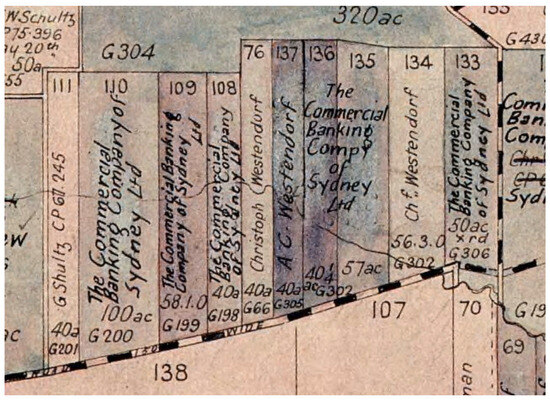 W.Schultz
P75·396
50a
G304
320ac
G430
111
G Shultz CP67.245
40a
G201
110
The Commercial
Banking Company of
Sydney Ltd
100ac
G200
109
The Commercial Banking
Company of Sydney Ltd
58.1.0
G199
108
The Commercial
Banking Company
of Sydney Ltd
40a
G198
76
Christoph Westendorf
40a
G66
137
A C. Westendorf
40a
G305
136
135
The
Commercial
Banking
Compy
of
Sydney
Ltd
40¼
ac
G302
57ac
134
Ch f. Westendorf
56.3.0
G302
133
The Commercial
Banking Company
of Sydney Ltd
50ac
x rd
G306
107
70
69
138